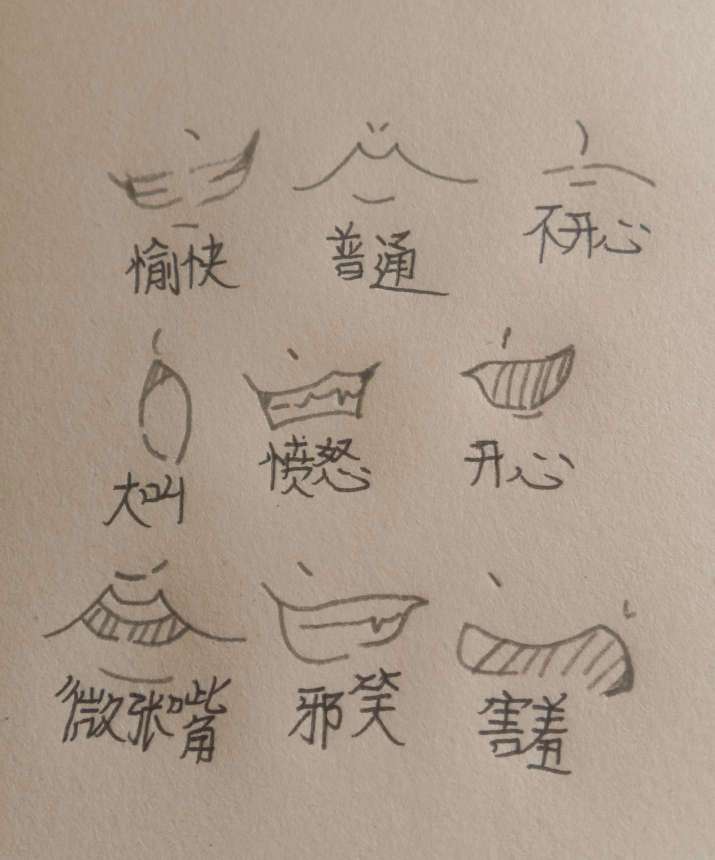 愉快 普通 不开心
大叫 愤怒 开心
微张嘴 邪笑 害羞